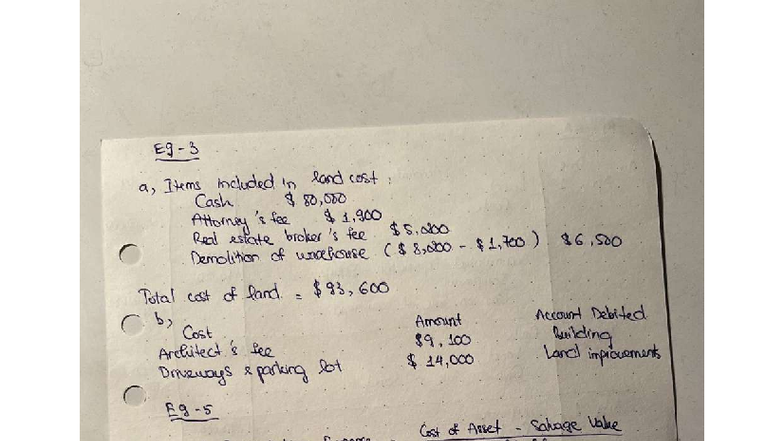 E9-3
a, Items included in land cost :
Cash $ 80,000
Attorney's fee $ 1,900
Real estate broker's fee $5,200
Demolition of warehouse ( $ 8,200 - $ 1,700 ) $6,500
Total cost of land = $93,600
b,
Cost Amount Account Debited
Architect's fee $9,100 Building
Driveways & parking lot $ 14,000 Land improvements
E9-5
Cost of Asset - Salvage Value